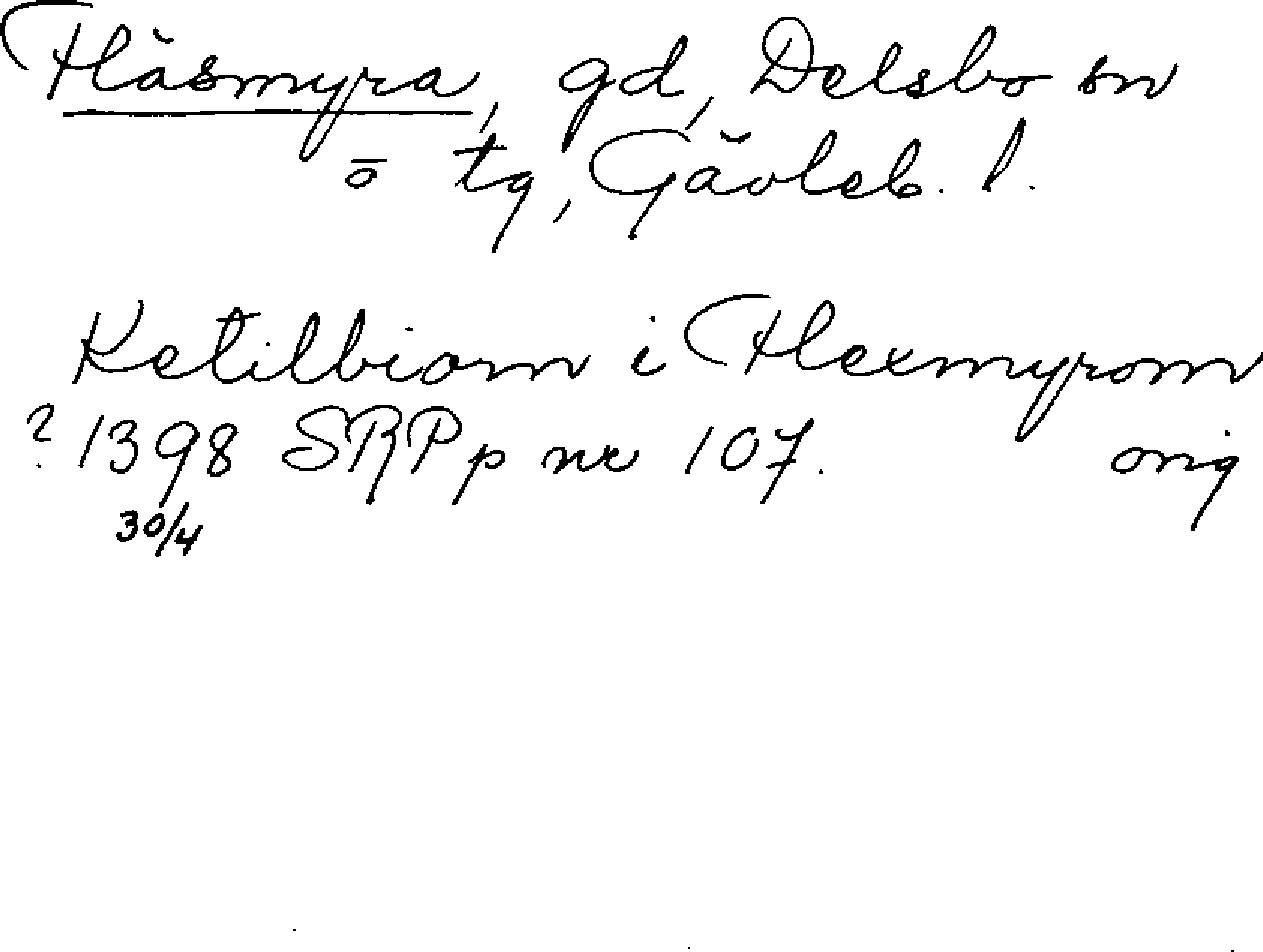 Häsmyra, gd, Delsbo sn
o tg, Gävleb. l.
Ketilbiorn i Hexmyrom
? 1398 SRPp nr 107. orig
30/4